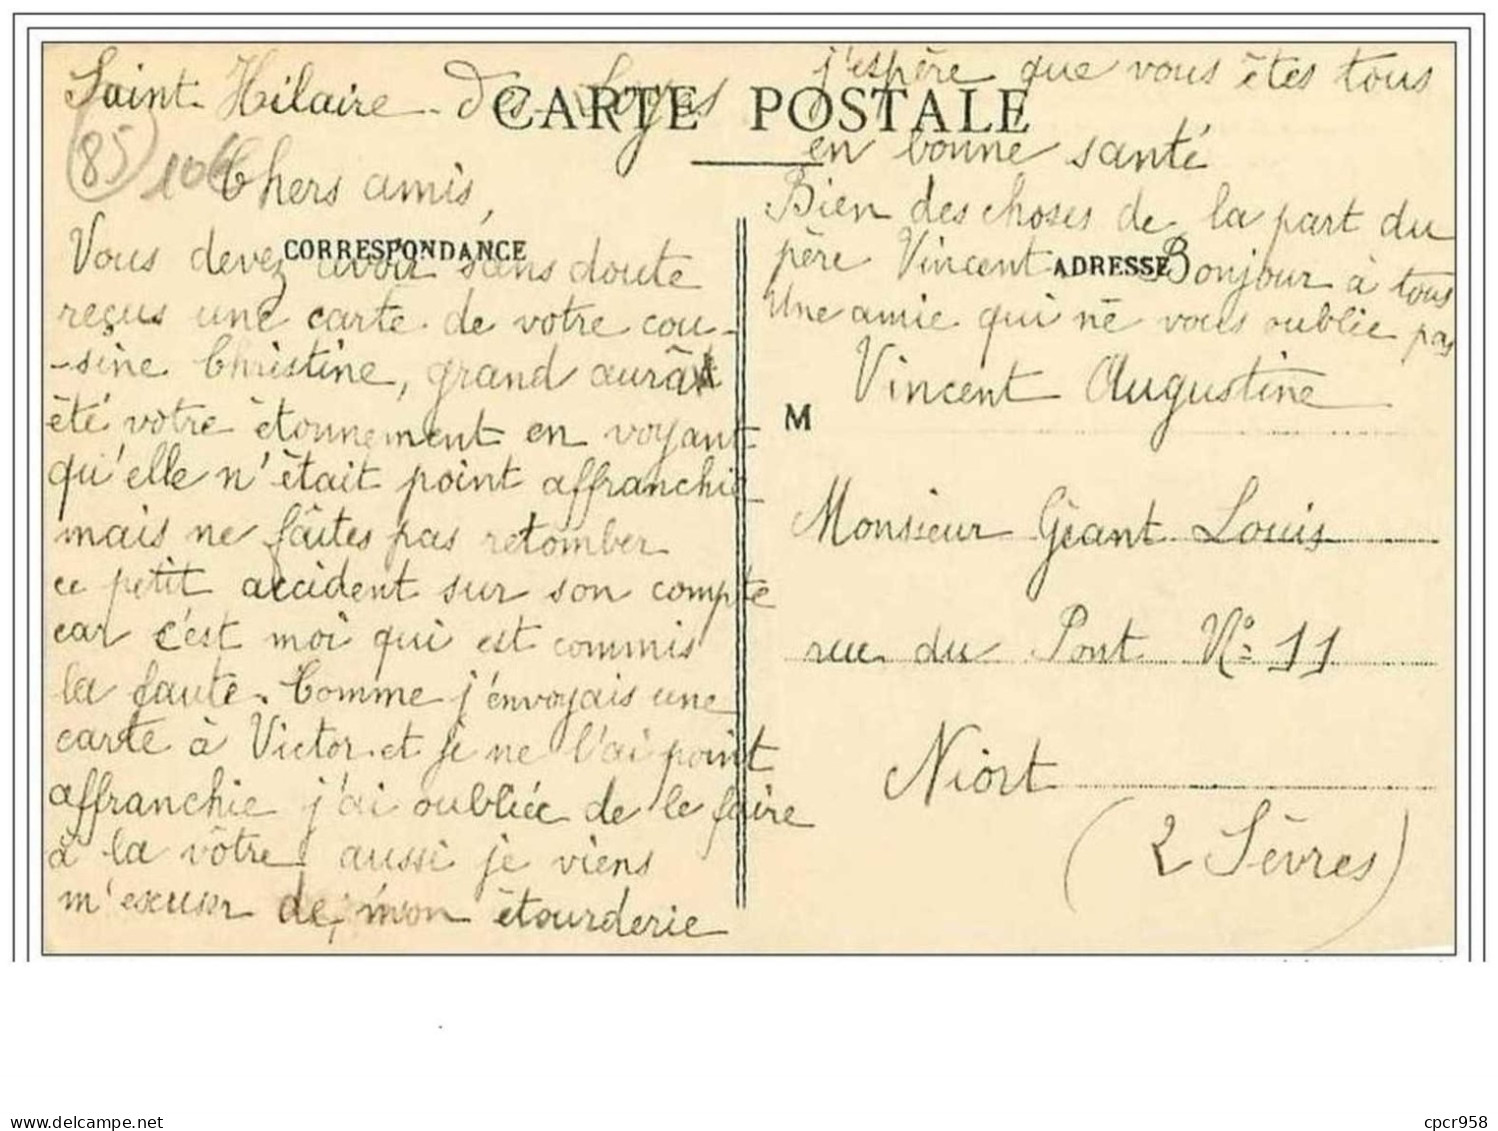 Saint-Hilaire-des-Loges
CARTE POSTALE
(85)
Chers amis,
CORRESPONDANCE
Vous devez avoir sans doute
reçus une carte de votre cou-
-sine Christine, grand aurât
été votre étonnement en voyant
qu'elle n'était point affranchie
mais ne fâites pas retomber
ce petit accident sur son compte
car c'est moi qui est commis
la faute. Comme j'envoyais une
carte à Victor et je ne l'ai point
affranchie j'ai oubliée de le faire
à la vôtre aussi je viens
m'excuser de mon étourderie
j'espère que vous êtes tous
en bonne santé
Bien des choses de la part du
père Vincent Bonjour à tous
ADRESSE
Une amie qui ne vous oublie pas
Vincent Augustine
M
Monsieur Géant Louis
rue du Pont Nº 11
Niort
(2 Sèvres)
delcampe.net
cpcr958